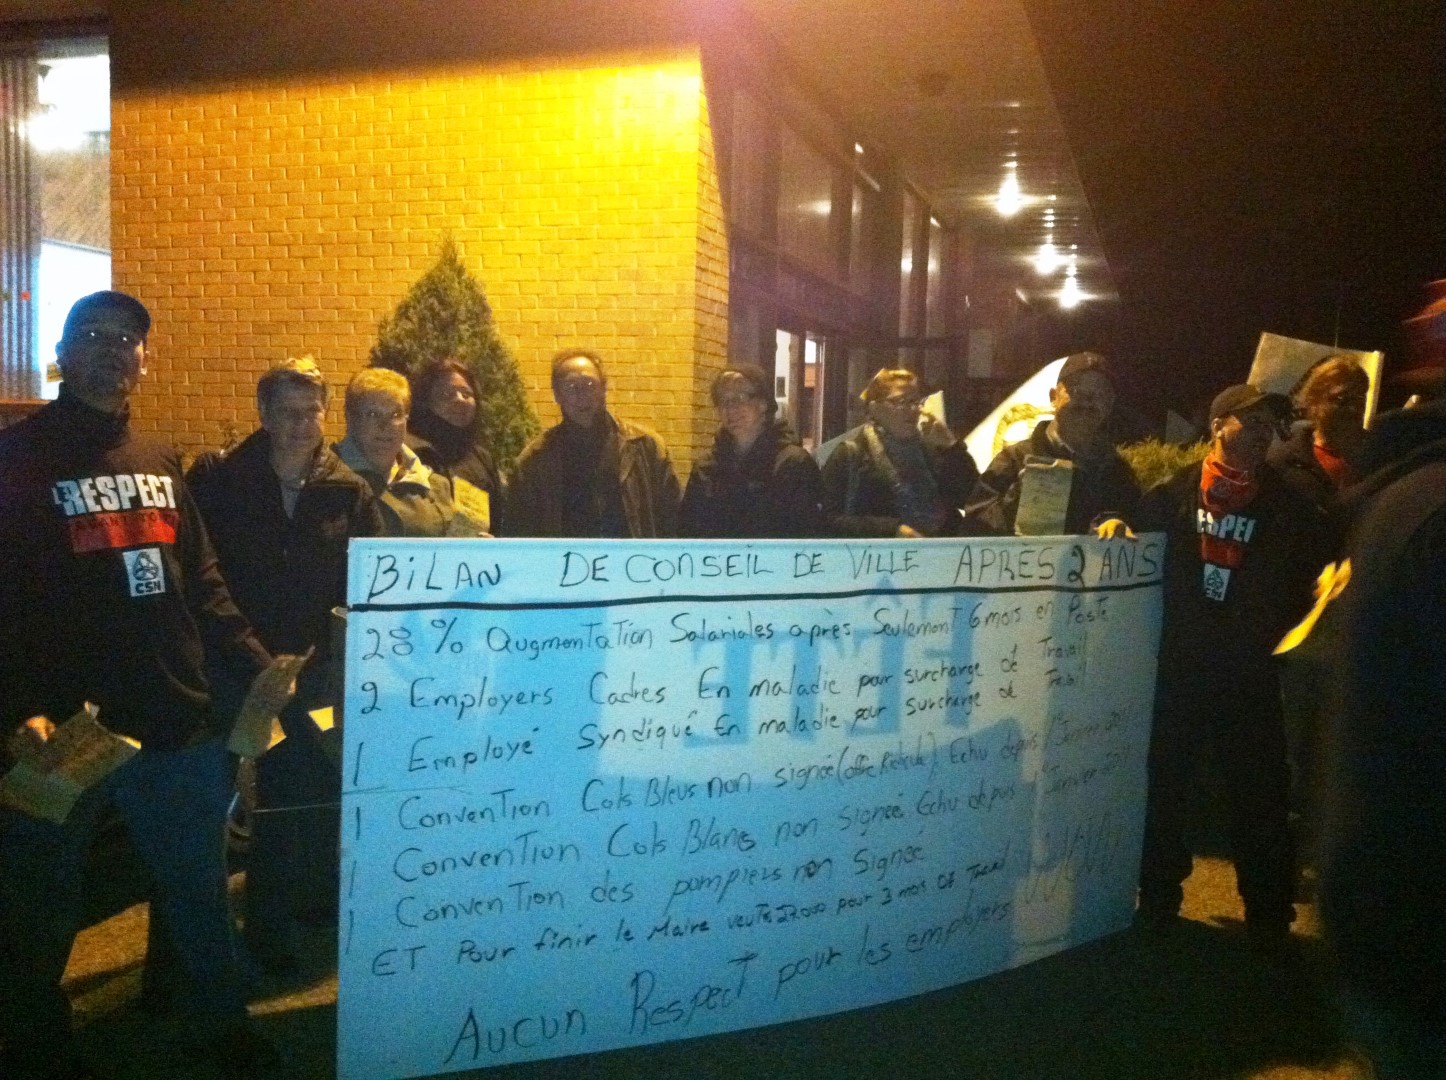 LE RESPECT
AVANT TOUT
CSN
ESPE
CSN
BiLAN DE CONSEIL DE VILLE APRÈS 2 ANS
28 % AugmenTaTion Salariales après Seulement 6 mois en PosTe
2 Employers Cadres En maladie pour surcharge de Travail
1 Employé Syndiqué En maladie pour surcharge de Travail
1 ConvenTion Cols Bleus non signée (offre Ridicule) Echu depuis 1er Janvier
1 ConvenTion Cols Blancs non signée Echu depuis 1er Janvier
1 ConvenTion des pompiers non Signée
ET Pour finir le Maire veut 27.000 pour 3 mois de Travail
Aucun RespecT pour les employers !!!!!!